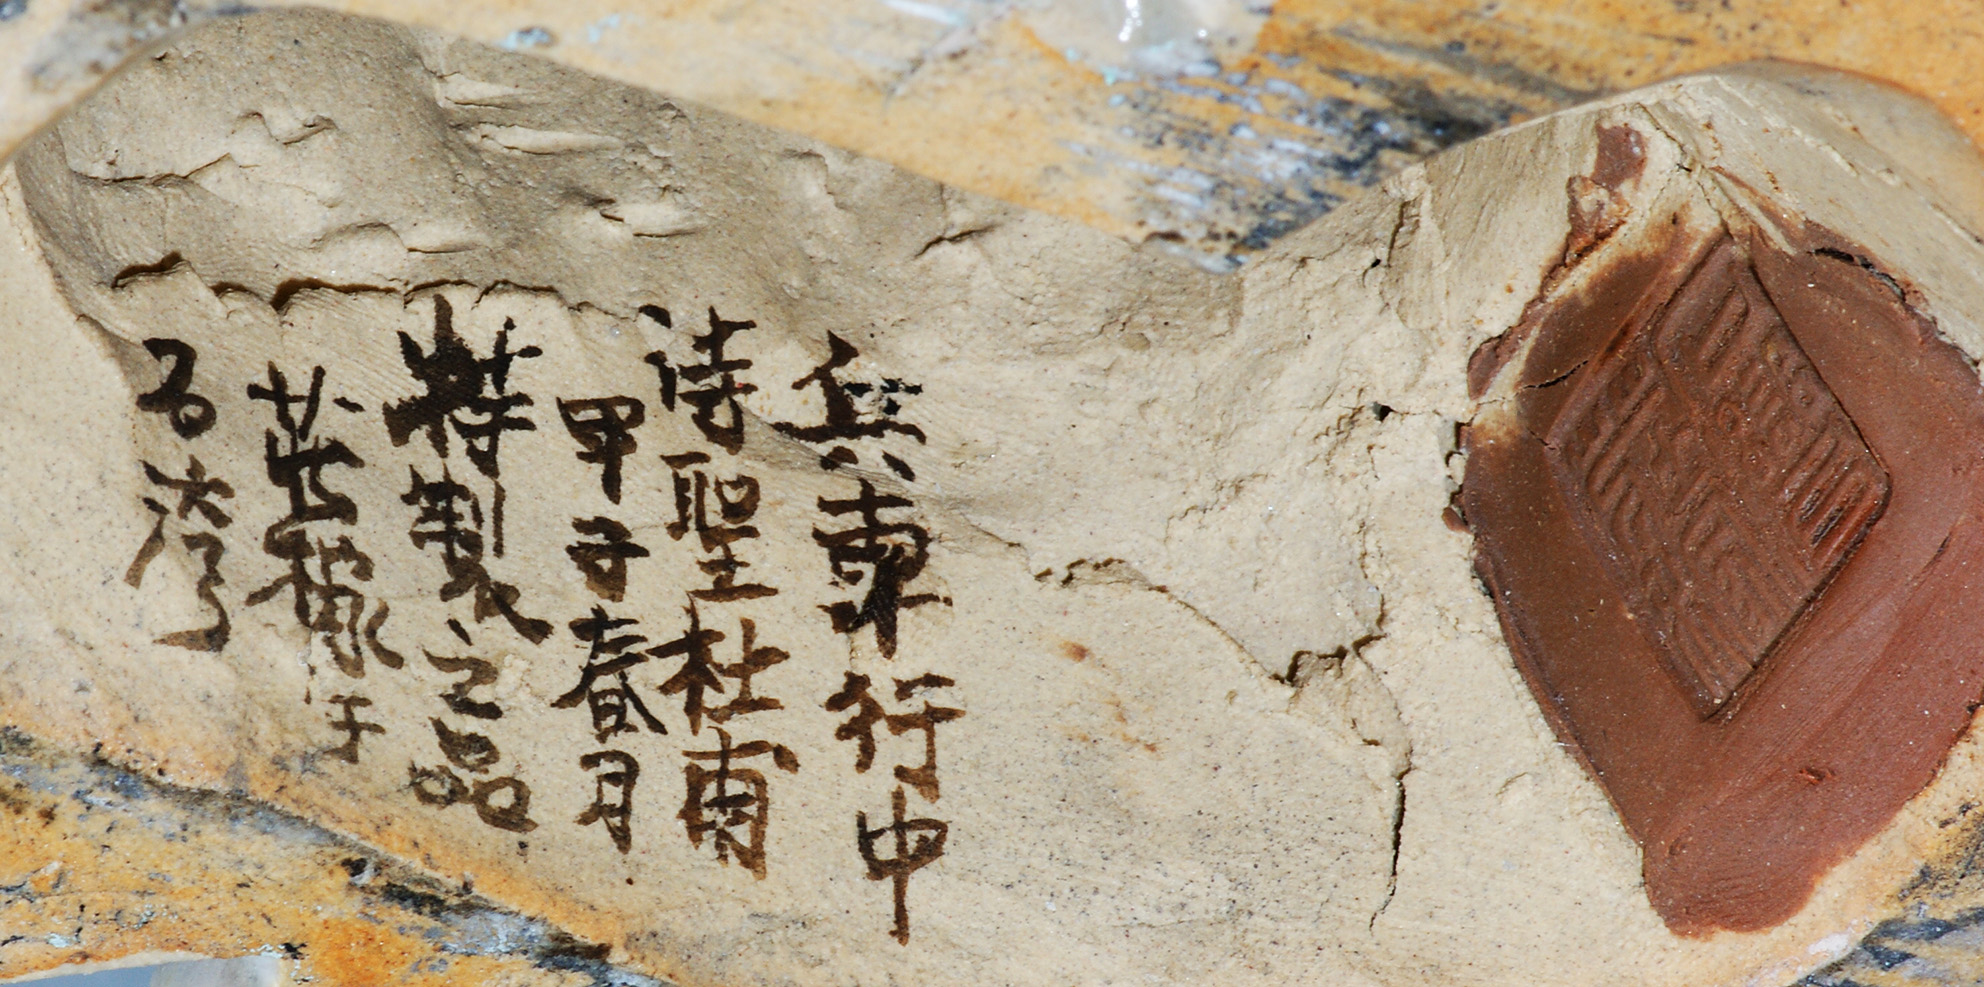 兵車行中
詩聖杜甫
甲子春月
特製之品
莊稼于
石湾